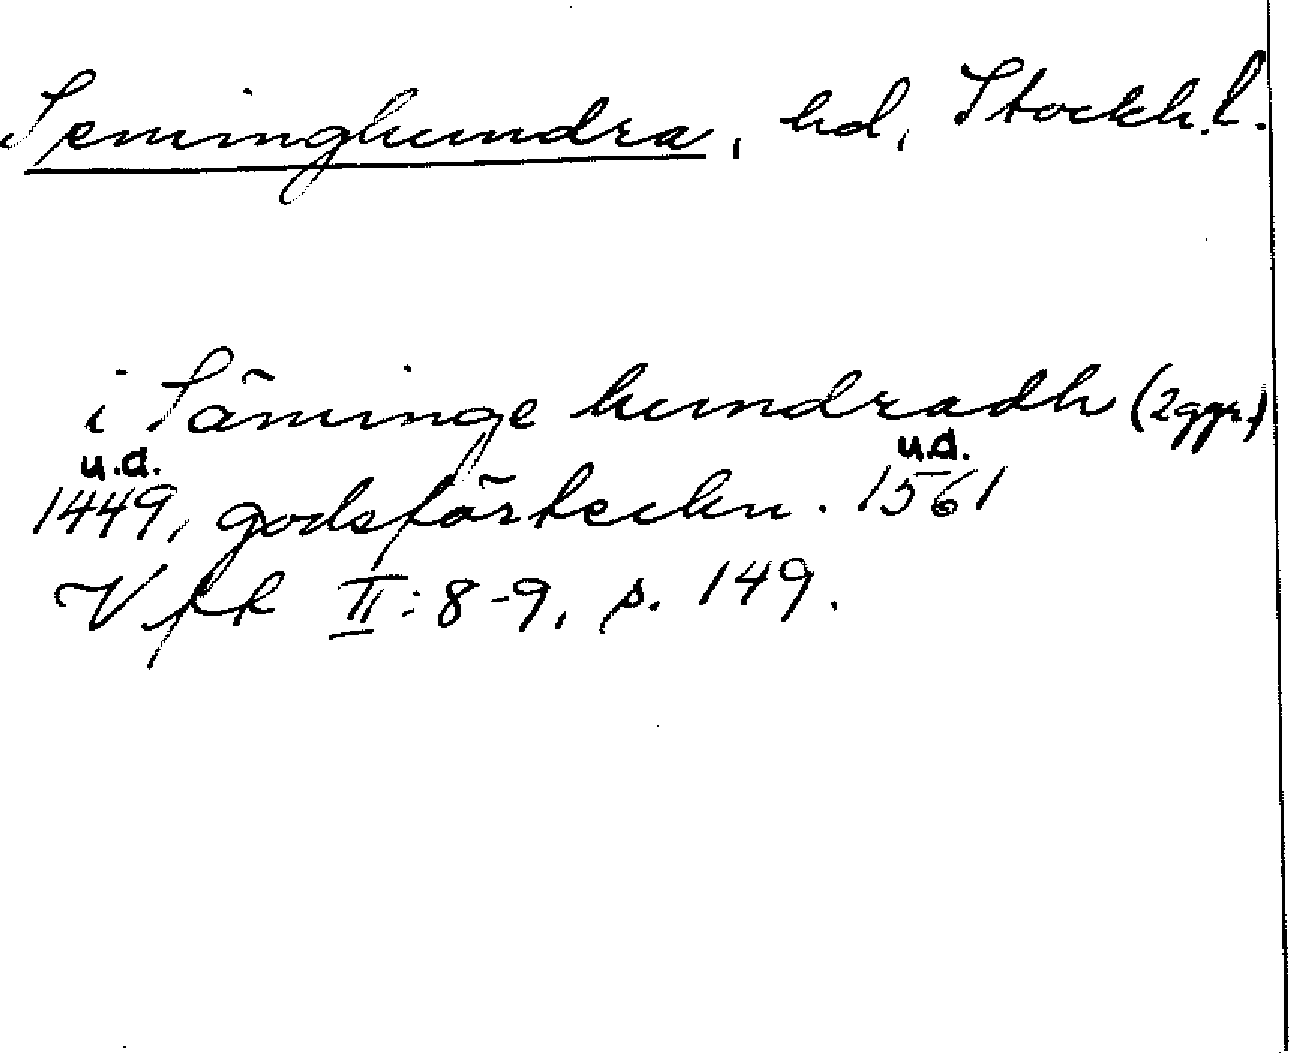 Seminghundra, hd, Stockh.l.
i Säminge hundradh (2 ggr.)
u.d. u.d.
1449, godsförteckn. 1561
Vfk II: 8-9, s. 149.